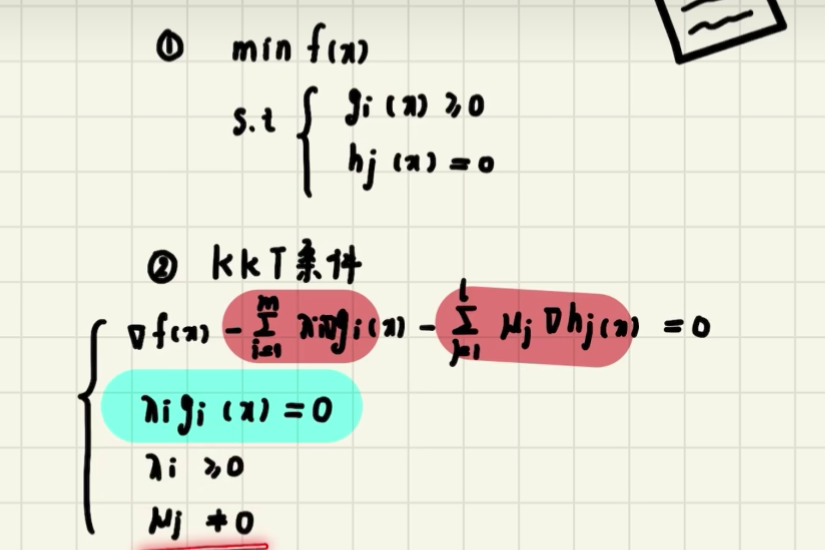 ① min f(x)
s.t { gi(x) ≥ 0
hj(x) = 0
② kkT条件
{ ∇f(x) - Σ_{i=1}^{m} λi∇gi(x) - Σ_{j=1}^{l} μj ∇hj(x) = 0
λi gi(x) = 0
λi ≥ 0
μj ≠ 0